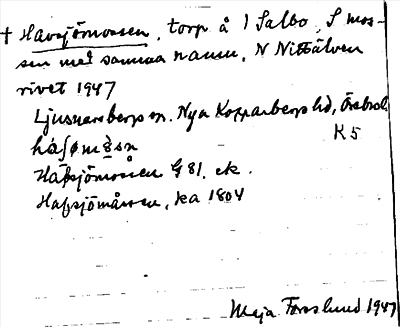 † Havsjömossen, torp å 1 Salbo, S mos-
sen med samma namn, N Nittälven
rivet 1947
Ljusnarsbergs sn. Nya Kopparbergs hd, Örebro l.
K 5
Hafsjömossen G 81, ek.
Hafsjömåssen, ka 1804
Maja Forsslund 1947